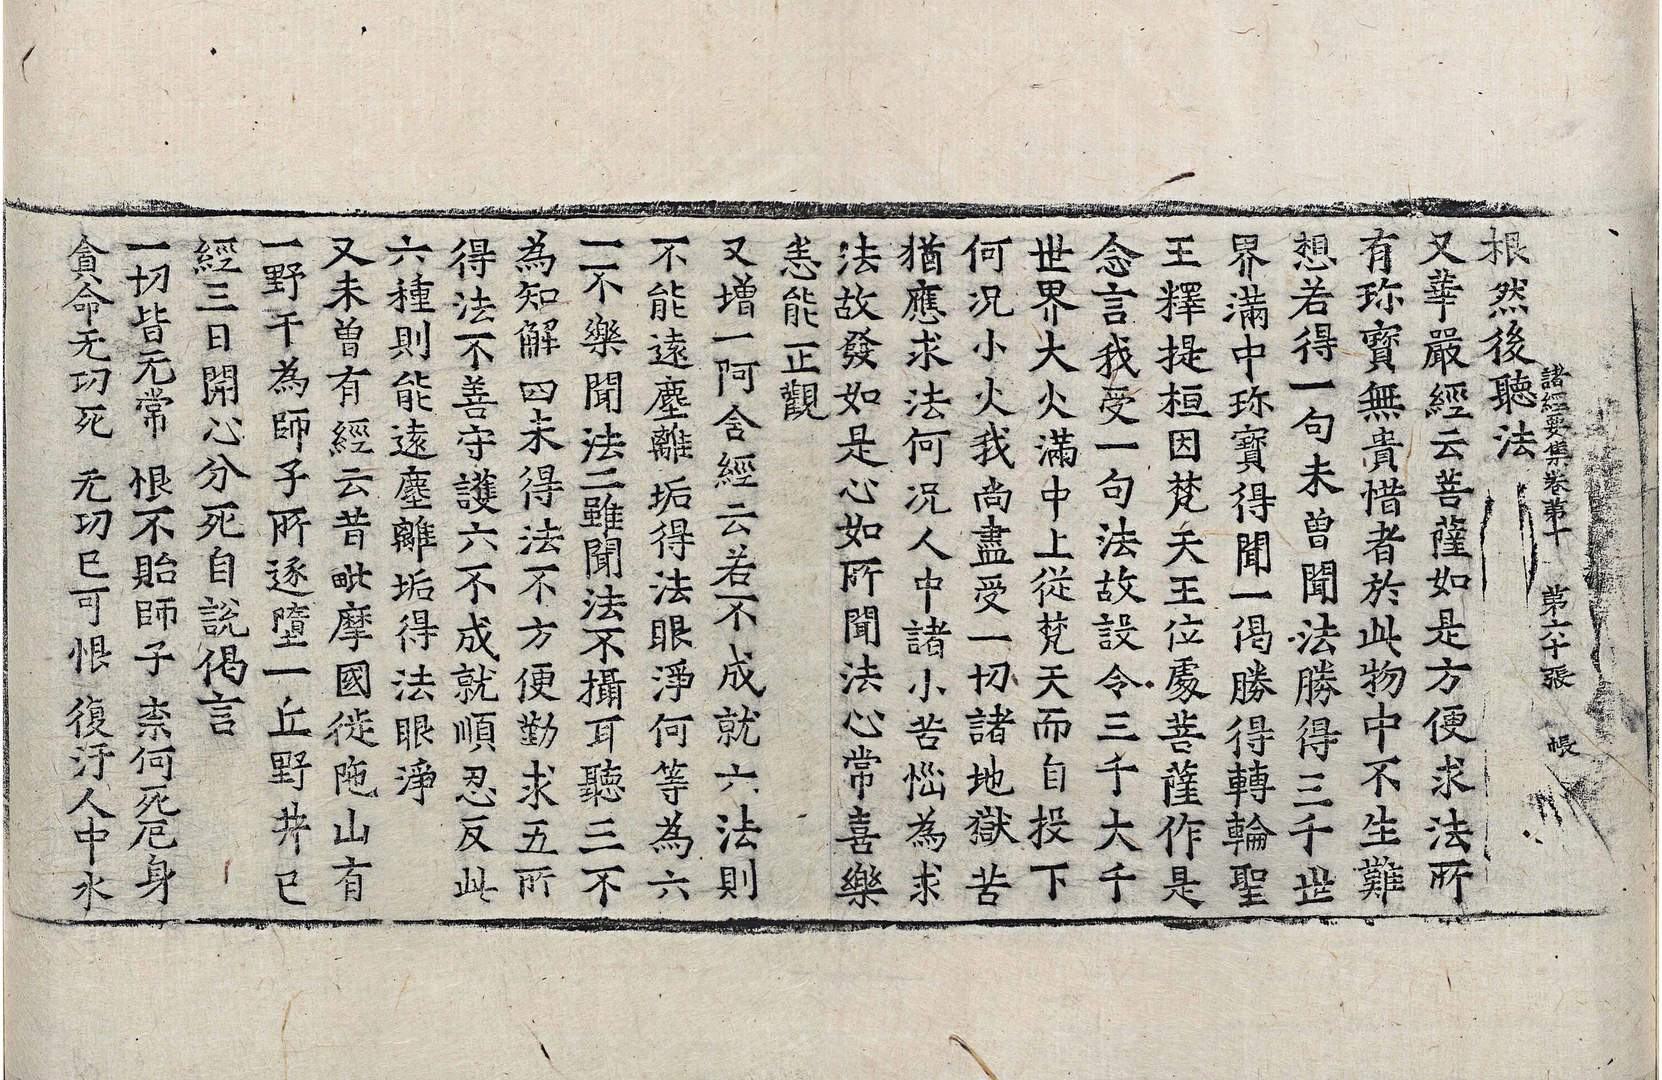 諸經要集卷第十 第六十張 帳
根然後聽法
又華嚴經云菩薩如是方便求法所
有珎寶無貴惜者於此物中不生難
想若得一句未曾聞法勝得三千世
界滿中珎寶得聞一偈勝得轉輪聖
王釋提桓因梵天王位處菩薩作是
念言我受一句法故設令三千大千
世界大火滿中上從梵天而自投下
何況小火我尚盡受一切諸地獄苦
猶應求法何況人中諸小苦惱為求
法故發如是心如所聞法心常喜樂
悉能正觀
又增一阿含經云若不成就六法則
不能遠塵離垢得法眼淨何等為六
一不樂聞法二雖聞法不攝耳聽三不
為知解四未得法不方便勤求五所
得法不善守護六不成就順忍反此
六種則能遠塵離垢得法眼淨
又未曾有經云昔毗摩國徙陁山有
一野干為師子所逐墮一丘野井已
經三日開心分死自說偈言
一切皆无常 恨不貽師子 柰何死厄身
貪命无功死 无功已可恨 復汙人中水